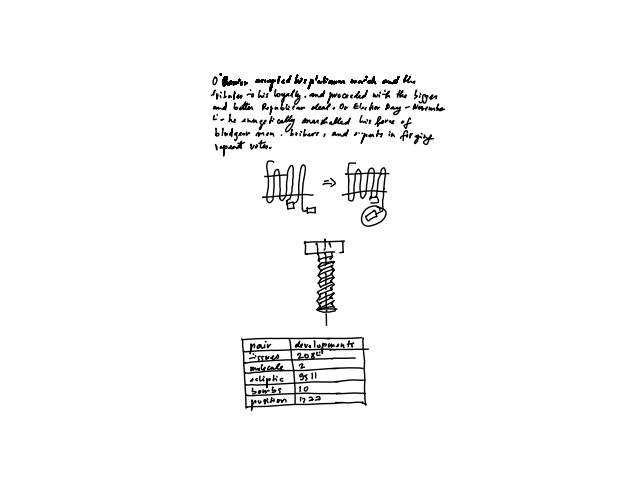 accepted his platinum watch and the
tributes to his loyalty, and proceeded with the bigger
and better Republican deal. On Election Day - November
- he energetically marshalled his force of
bludgeon men, bribers, and experts in forging
repeat votes.
pair developments
issues
molecule 2
ecliptic 9511
bombs 10
position 1722